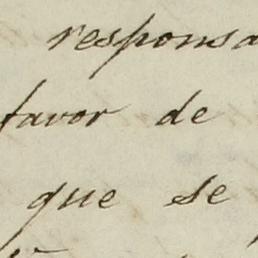 responsa
favor de
que se